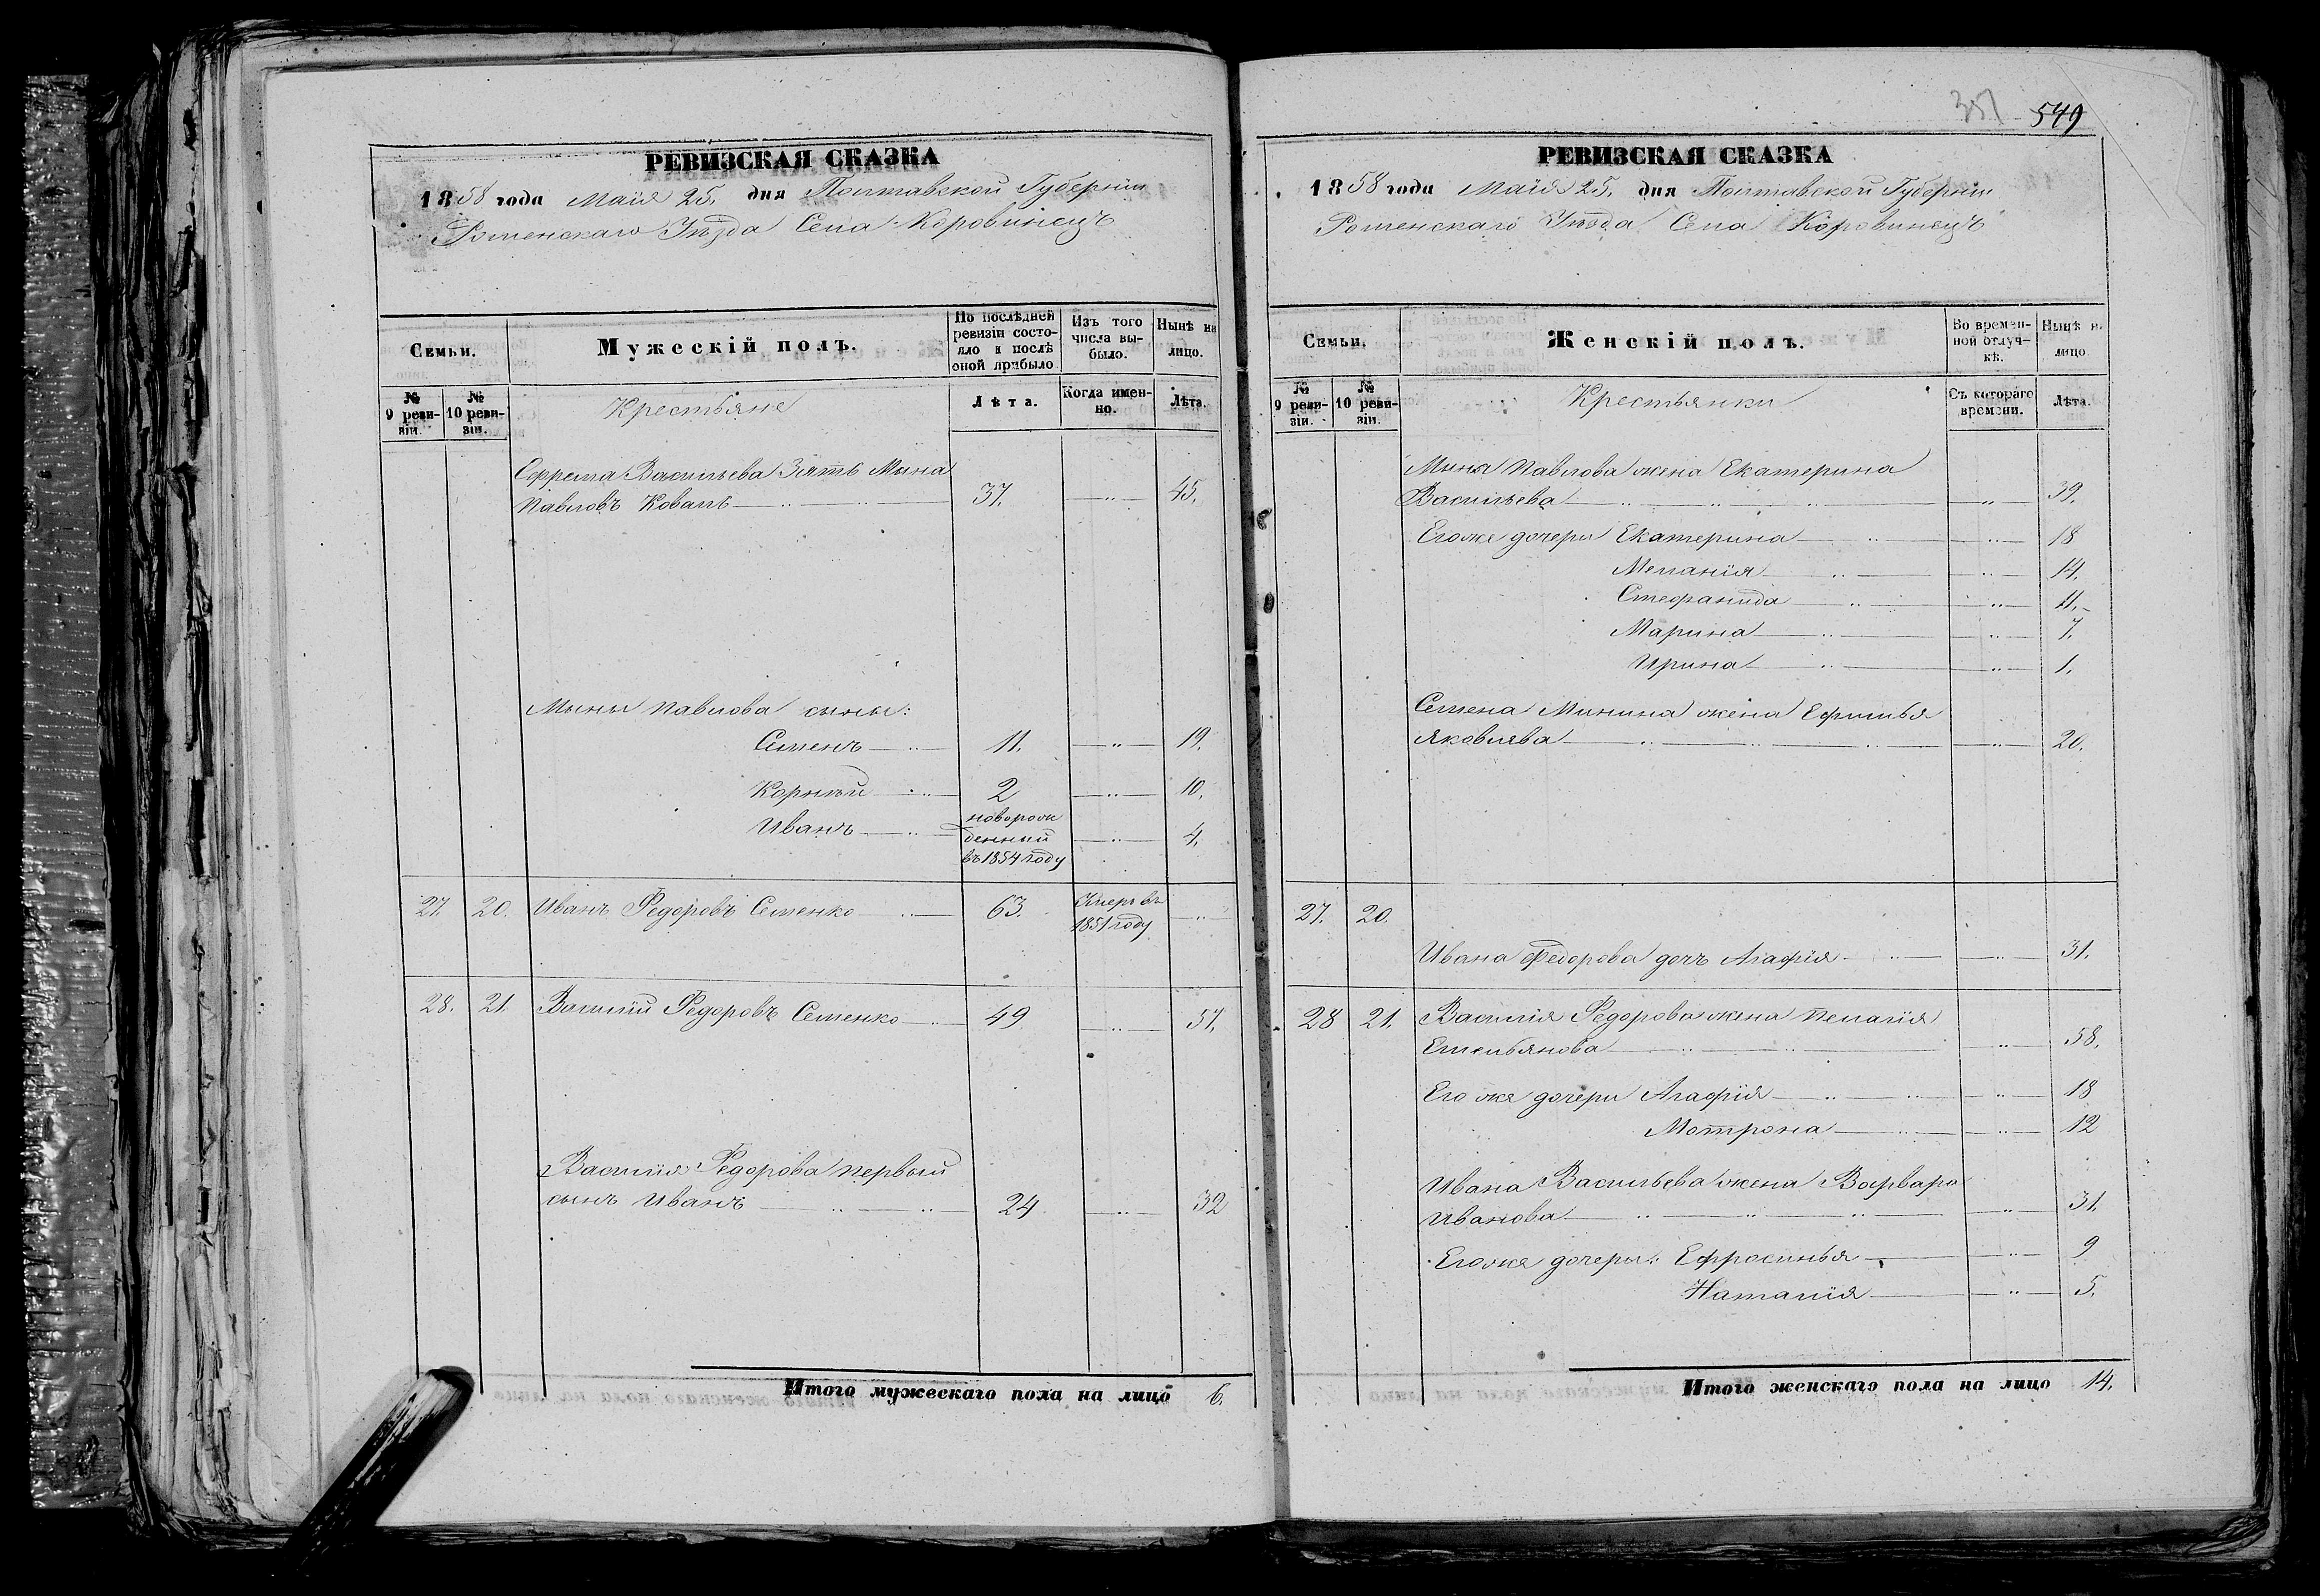 РЕВИЗСКАЯ СКАЗКА
1858 года Маія 25. дня Полтавской Губерніи
Роменскаго Уѣзда Села Коровинецъ
Семьи.
Мужескій полъ.
По послѣдней ревизіи состояло и послѣ оной прибыло
Изъ того числа выбыло.
Нынѣ на лицо.
№ 9 ревизіи.
№ 10 ревизіи.
Крестьяне
Лѣта.
Когда именно.
Лѣта.
Ефрема Васильева Зять Мина
Павловъ Коваль 37. 45.
Мины Павлова сыны:
Семенъ 11. 19.
Корній 2 10.
Иванъ новорож
денный 4.
въ 1854 году
27. 20. Иванъ Федоровъ Семенко 63. Умеръ въ
1851 году
28. 21. Василій Федоровъ Семенко 49 57.
Василія Федорова первый
сынъ Иванъ 24 32
Итого мужескаго пола на лицо 6.
357 549
РЕВИЗСКАЯ СКАЗКА
1858 года Маія 25. дня Полтавской Губерніи
Роменскаго Уѣзда Села Коровинецъ
Семьи.
Женскій полъ.
Во временной отлучкѣ.
Нынѣ н. лицо
№ 9 ревизіи.
№ 10 ревизіи.
Крестьянки
Съ котораго времени.
Лѣта.
Мины Павлова жена Екатерина
Васильева 39.
Егоже дочери Екатерина 18
Меланія 14.
Стефанида 11.
Марина 7.
Ирина 1.
Семена Минина жена Ефимья
Яковлева 20.
27. 20.
Ивана Федорова дочь Агафія 31.
28 21. Василія Федорова жена Пелагія
Емельянова 58.
Его же дочери Агафія 18
Мотрона 12
Ивана Васильева жена Варвара
Иванова 31.
Егоже дочеры: Ефросинья 9
Наталія 5.
Итого женскаго пола на лицо 14.